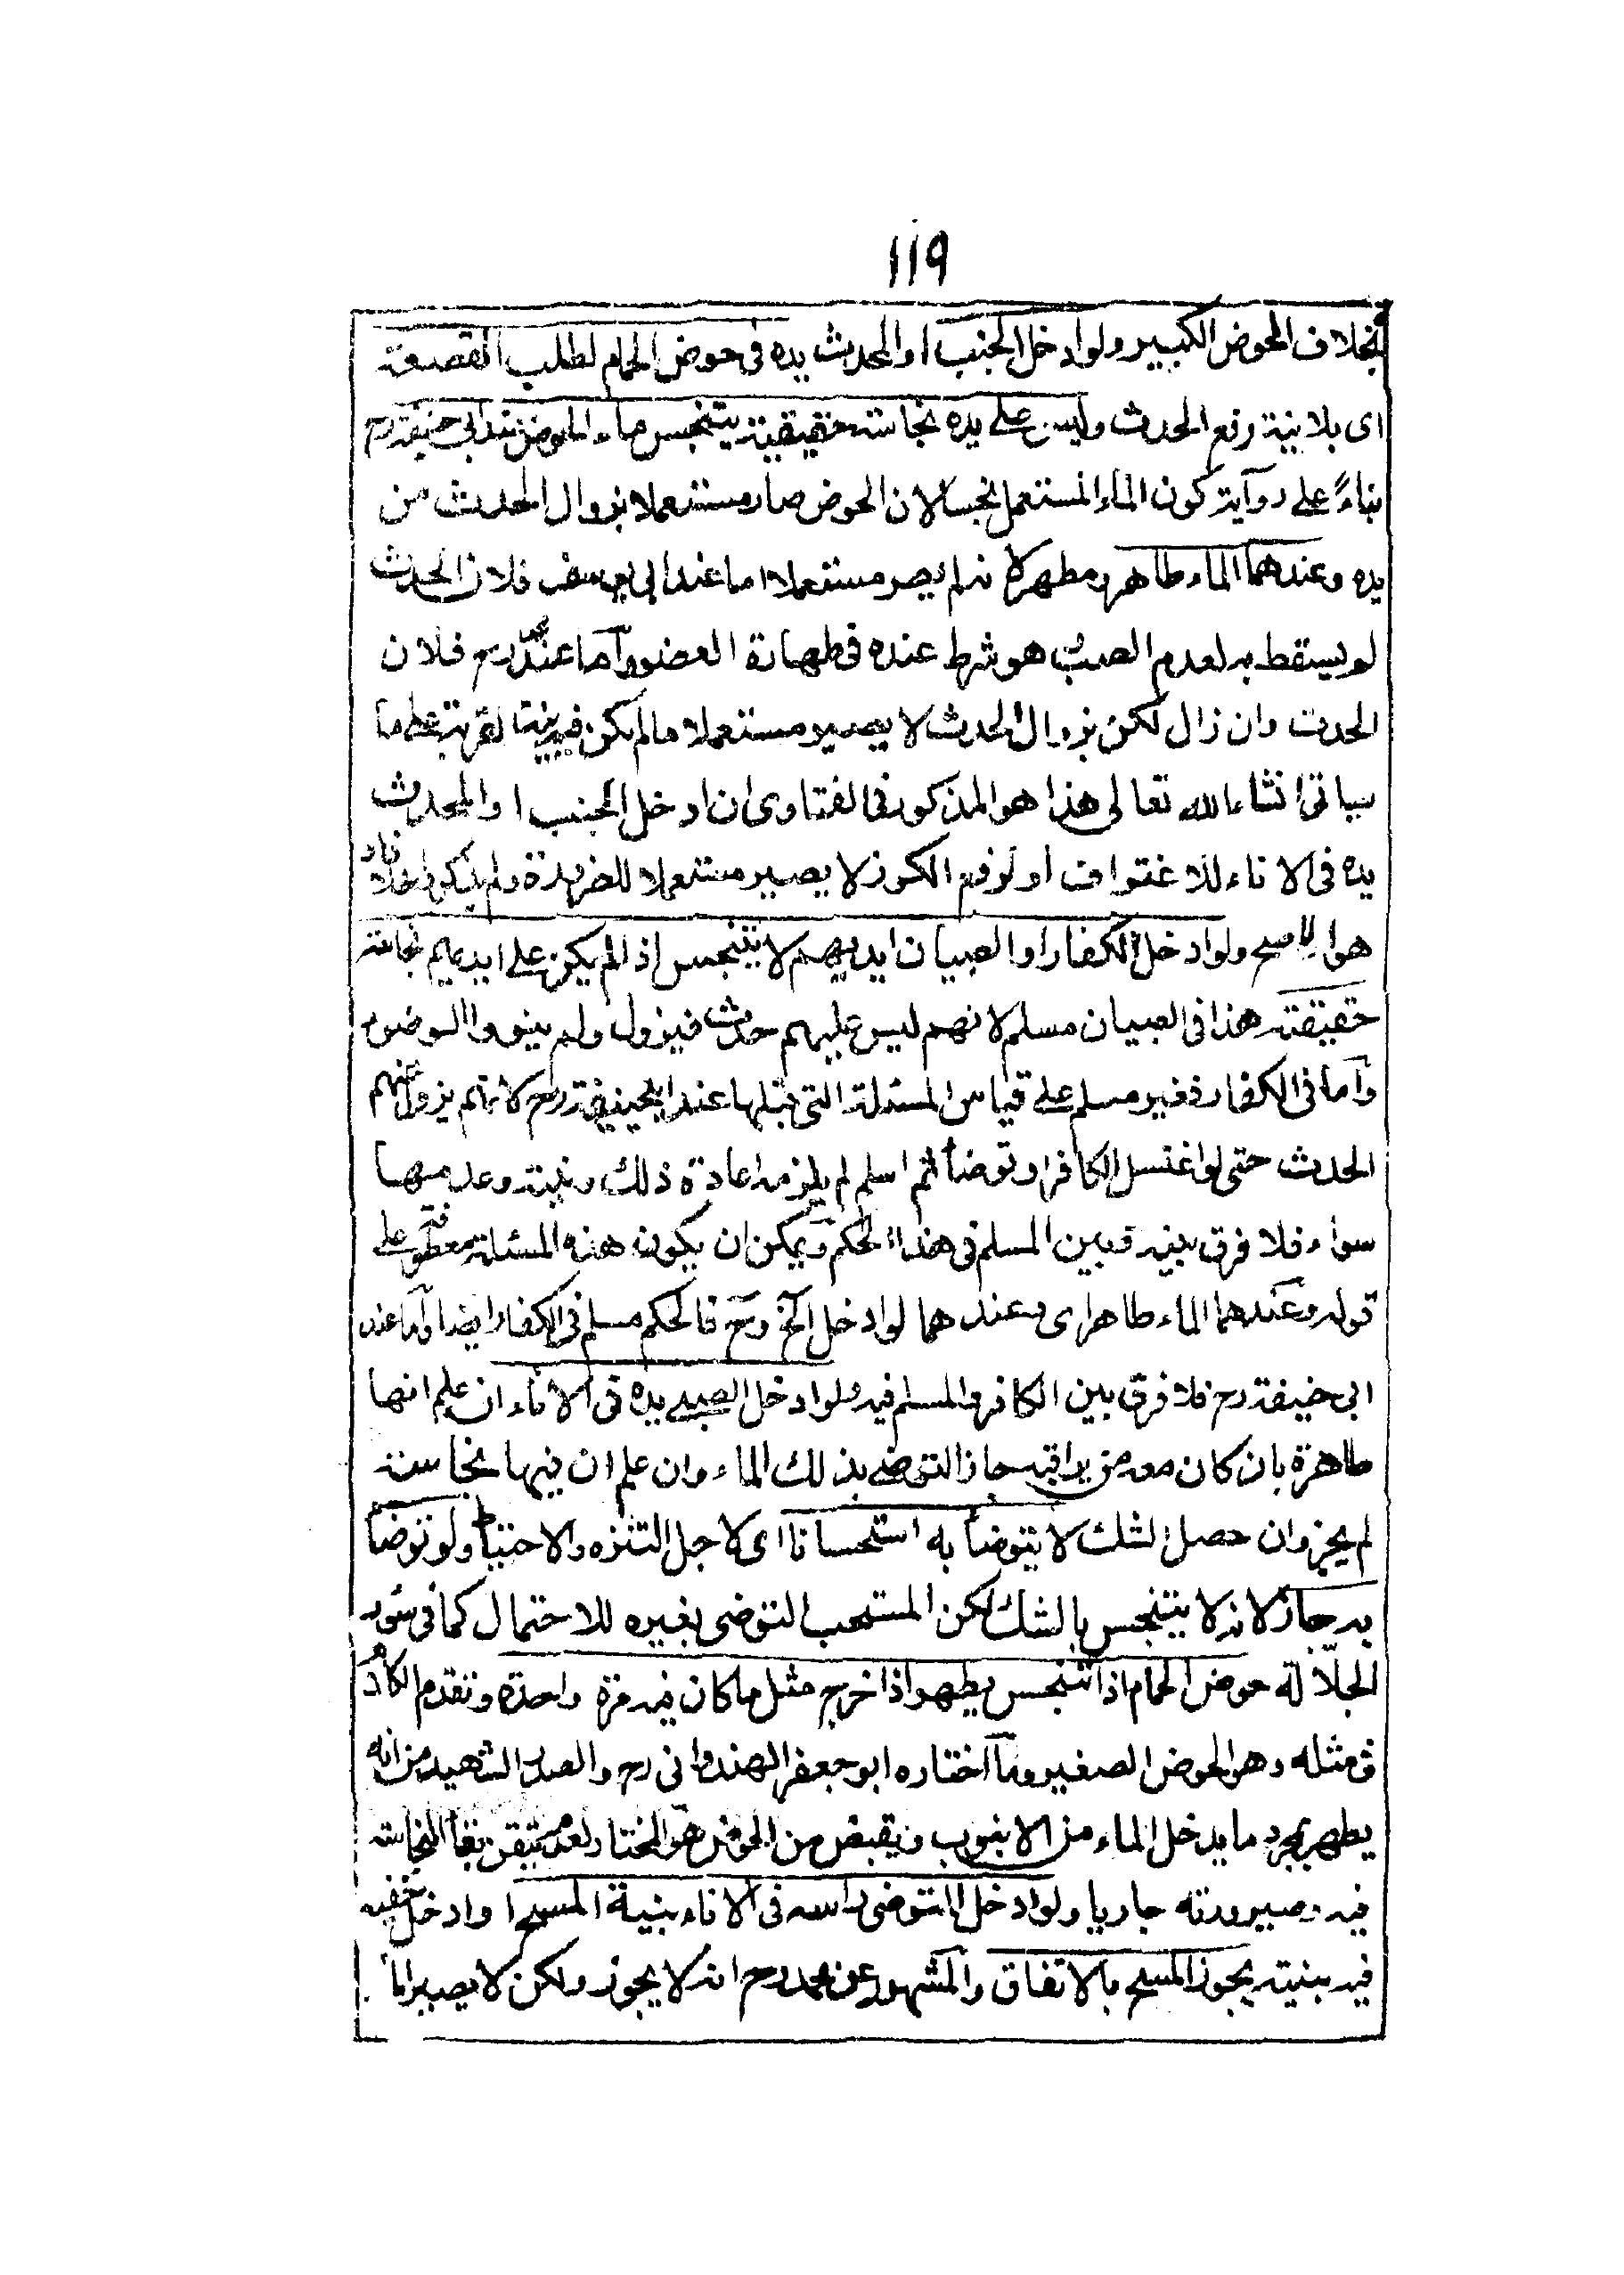 ١١٩
بخلاف الحوض الكبير ولو ادخل الجنب او المحدث يده فى حوض الحمام لطلب القصعة
اى بلا نية رفع الحدث وليس على يده نجاسة حقيقية يتنجس ماء الحوض عند ابى حنيفة رح
بناءً على رواية كون الماء المستعمل نجسا لان الحوض صار مستعملا بزوال الحدث من
يده وعندهما الماء طاهر ومطهر لانه لم يصر مستعملا اما عند ابى يوسف فلان الحدث
لم يسقط به لعدم الصب هو شرط عنده فى طهارة العضو واما عند محمد رح فلان
الحدث وان زال لكن بزوال الحدث لا يصير مستعملا ما لم يكن فيه نية القربة على ما
سياتى انشاء الله تعالى هذا هو المذكور فى الفتاوى ان ادخل الجنب او المحدث
يده فى الاناء للاغتراف او لرفع الكوز لا يصير مستعملا للضرورة ولم يذكر خلافا
هو الاصح ولو ادخل الكفار او الصبيان ايديهم لا يتنجس اذا لم يكن على ايديهم نجاسة
حقيقة هذا فى الصبيان مسلم لانهم ليس عليهم حدث فيزول ولم ينووا الوضوء
واما فى الكفار فغير مسلم على قياس المسئلة التى قبلها عند ابيحنيفة رح لانهم يزول عنهم
الحدث حتى لو اغتسل الكافر او توضأ ثم اسلم لم يلزمه اعادة ذلك ونيته وعدمها
سواء فلا فرق بينه وبين المسلم فى هذا الحكم ويمكن ان يكون هذه المسئلة معطوفة على
قوله وعندهما الماء طاهر اى وعندهما لو ادخل الخ وح فالحكم مسلم فى الكفار ايضا واما عند
ابى حنيفة رح فلا فرق بين الكافر والمسلم فيه ولو ادخل الصبى يده فى الاناء ان علم انها
طاهرة بان كان معه من يراقبه جاز التوضى بذلك الماء وان علم ان فيها نجاسة
لم يجز وان حصل الشك لا يتوضأ به استحسانا اى لاجل التنزه والاحتياط ولو توضأ
به جاز لانه لا يتنجس بالشك لكن المستحب التوضى بغيره للاحتمال كما فى سور
الجلّالة حوض الحمام اذا تنجس يطهر اذا خرج مثل ما كان فيه مرة واحدة وتقدم الكلام
فى مثله وهو الحوض الصغير وما اختاره ابو جعفر الهندوانى رح والصدر الشهيد من انه
يطهر بمجرد ما يدخل الماء من الانبوب ويفيض من الحوض هو المختار لعدم تيقن بقاء النجاسة
فيه وصيرورته جاريا ولو ادخل المتوضى راسه فى الاناء بنية المسح او ادخل خفيه
فيه بنيته يجوز المسح بالاتفاق والمشهور عن محمد رح انه لا يجوز ولكن لا يصير الماء